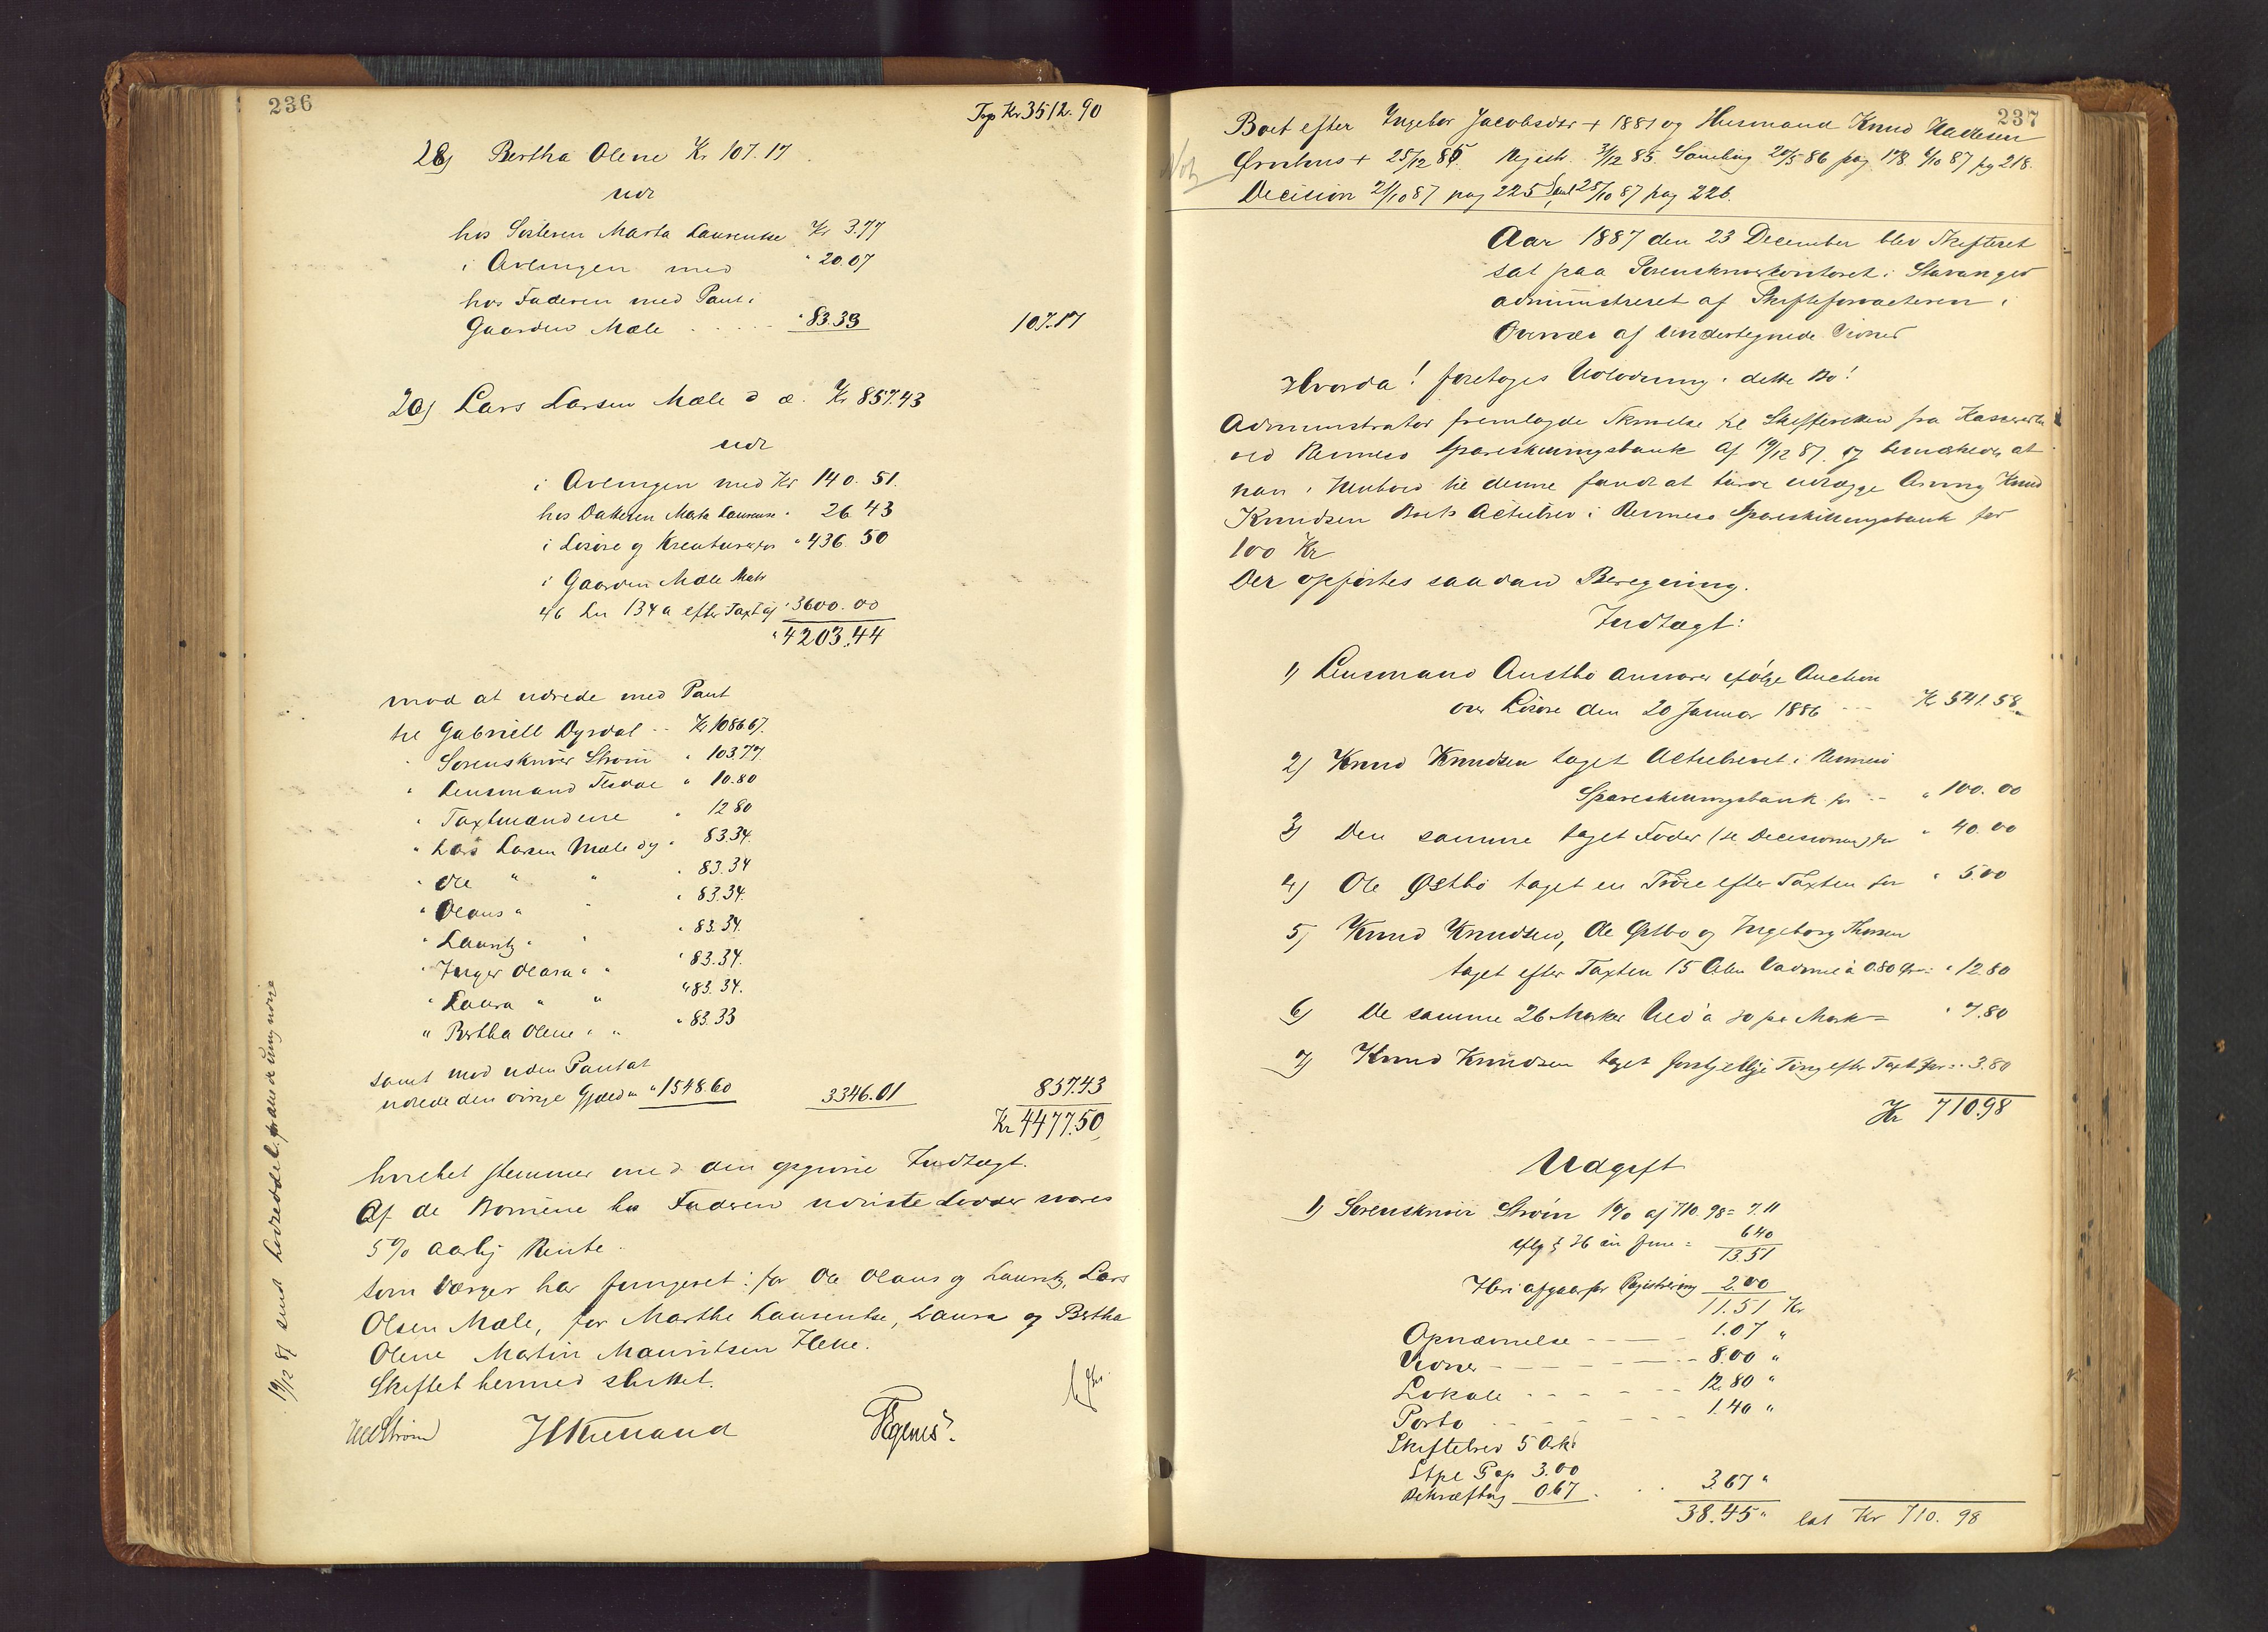 236
Tsp Kr 3512.90
28) Bertha Olene Kr 107.17
udl
hos Søsteren Marta Laurentse Kr 3.77
i Avlingen med " 20.07
hos Faderen med Pant i
Gaarden Mæle . . . . . " 83.33 107.17
29) Lars Larsen Mæle d æ. Kr 857.43
udl
i Avlingen med Kr 140.51.
hos Datteren Marta Laurense " 26 43
i Løsøre og Kreature for " 436.50
i Gaarden Mæle Matr
46 Ln 134a efter Taxt af " 3600.00
" 4203.44
mod at udrede med Pant
til Gabriell Dysdal -- Kr 1086 67.
" Sorenskriver Strøm " 103.77.
" Lensmand " 10.80
" Taxtmændene " 12 80
" Lars Larsen Mæle dy " 83.34.
" Ole " " " 83.34
" Olaus " " " 83.34.
" Lauritz " " " 83.34.
" Inger Olara " " " 83.34.
" Laura " " " 83.34.
" Bertha Olene " " " 83.33
samt mod uden Pant at
udrede den øvrige Gjæld m " 1548.60 3346.01 857.43
Kr 4477.50
hvilket stemmer med den opgivne Indtægt.
Af de Børnene hos Faderen udviste Lodder svares
5% aarlig Rente.
Som Værger har fungeret: for Ole Olaus og Lauritz, Lars
Olsen Mæle, for Marthe Laurentse, Laura og Bertha
Olene Martin Mauritsen Helle.
Skiftet hermed sluttet.
Strøm
19/12 87 sendt
237
Boet efter Ingebor Jacobsdtr + 1881 og Husmand Knud
+ 25/12 85. Regist. 31/12 85. Samling 20/5 86 pag 178. 6/10 87 pg 218.
Decision 21/10 87 pag 225 Saml 25/10 87 pag 226.
Not
Aar 1887 den 23 December blev Skifteret
sat paa Sorenskriverkontoret i Stavanger
administreret af Skifteforvalteren i
Overvær af undertegnede Vidner
Hvorda! foretoges Udlodning i dette Bo!
Administrator fremlagde Skrivelse til Skifteretten fra Kassereren
ved Rennesø Spareskillingsbank af 19/12 87. og bemærkede, at
han i Henhold til denne fandt at turde udlægge Arving Knud
Knudsen Boets Actiebrev i Rennesø Spareskillingsbank for
100 Kr
Der opførtes saadan Beregning.
Indtægt:
1) Lensmand Austbø ansvarer ifølge Auction
over Løsøre den 20 Januar 1886 --- Kr 541.58
2) Knud Knudsen taget Actiebrevet i Rennesø
Spareskillingsbank for -- " 100.00
3) Den samme taget Foder (se Decisionen) for " 40.00
4) Ole Østbø taget en Trøie efter Taxten for " 5.00
5) Knud Knudsen, Ole Østbø og Ingeborg Thorsen
taget efter Taxten 15 Alen Vadmel à 0.80 Øre = " 12.80
6) De samme 26 Marker Uld à 30 pr Mark = " 7.80
7) Knud Knudsen taget forskjellige Ting efter Taxt for = " 3.80
Kr 710.98
Udgift
1) Sorenskriver Strøm 1% af 710.98 = 7.11
iflg § 26 in fine = 6.40
13.51
Heri afgaar for Registrering 2.00
11.51 Kr
Opnævnelse ----- 1.07 "
Vidner ----- 8.00 "
Lokale ----- 12.80 "
Porto ----- 1.40 "
Skiftebrev 5 Ark
Stpl Pap 3.00
Bekræftelse 0.67 . . 3.67 "
38.45 " lat Kr 710.98